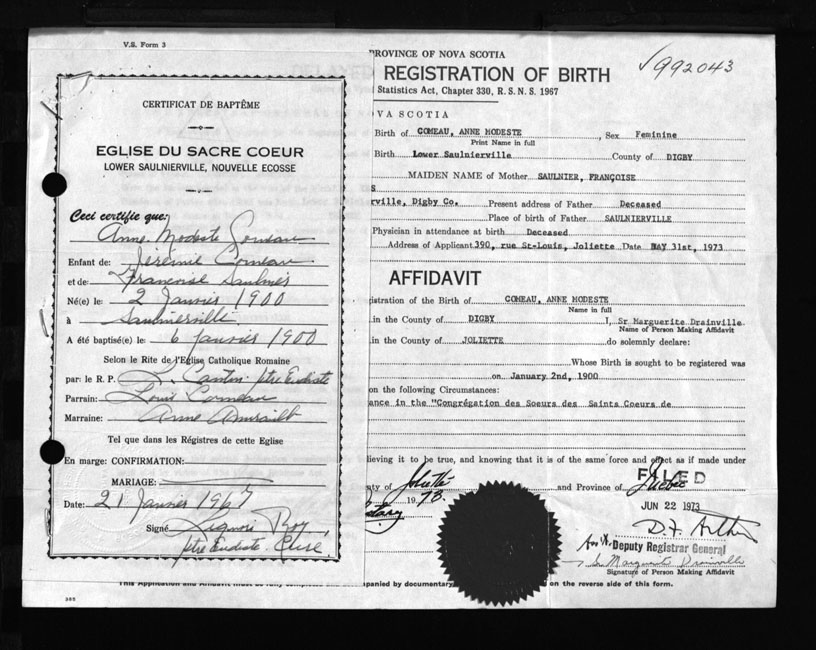 V.S. Form 3
CERTIFICAT DE BAPTÊME
EGLISE DU SACRE COEUR
LOWER SAULNIERVILLE, NOUVELLE ECOSSE
Ceci certifie que:
Anne Modeste Comeau
Enfant de: Jérémie Comeau
et de: Francoise Saulnier
Né(e) le: 2 Janvier 1900
à Saulnierville
A été baptisé(e) le: 6 janvier 1900
Selon le Rite de l'Eglise Catholique Romaine
par: le R. P. ptre Eudiste
Parrain: Louis Comeau
Marraine: Anne Amirault
Tel que dans les Régistres de cette Eglise
En marge: CONFIRMATION:
MARIAGE:
Date: 21 Janvier 1967
Signé Roy,
ptre Eudiste. Curé
PROVINCE OF NOVA SCOTIA
992043
REGISTRATION OF BIRTH
Statistics Act, Chapter 330, R.S.N.S. 1967
OVA SCOTIA
Birth of COMEAU, ANNE MODESTE, Sex Feminine
Print Name in full
Birth Lower Saulnierville County of DIGBY
MAIDEN NAME of Mother SAULNIER, FRANÇOISE
S
rville, Digby Co. Present address of Father Deceased
Place of birth of Father SAULNIERVILLE
Physician in attendance at birth Deceased
Address of Applicant 390, rue St-Louis, Joliette Date MAY 31st, 1973
AFFIDAVIT
gistration of the Birth of COMEAU, ANNE MODESTE
Name in full
in the County of DIGBY I, Sr Marguerite Drainville
Name of Person Making Affidavit
in the County of JOLIETTE do solemnly declare:
Whose Birth is sought to be registered was
on January 2nd, 1900
on the following Circumstances:
ance in the "Congrégation des Soeurs des Saints Coeurs de
lieving it to be true, and knowing that it is of the same force and effect as if made under
County of Joliette and Province of Québec
FILED
1973.
JUN 22 1973
Deputy Registrar General
Sr Marguerite Drainville
Signature of Person Making Affidavit
This Application and Affidavit must be fully panied by documentary on the reverse side of this form.